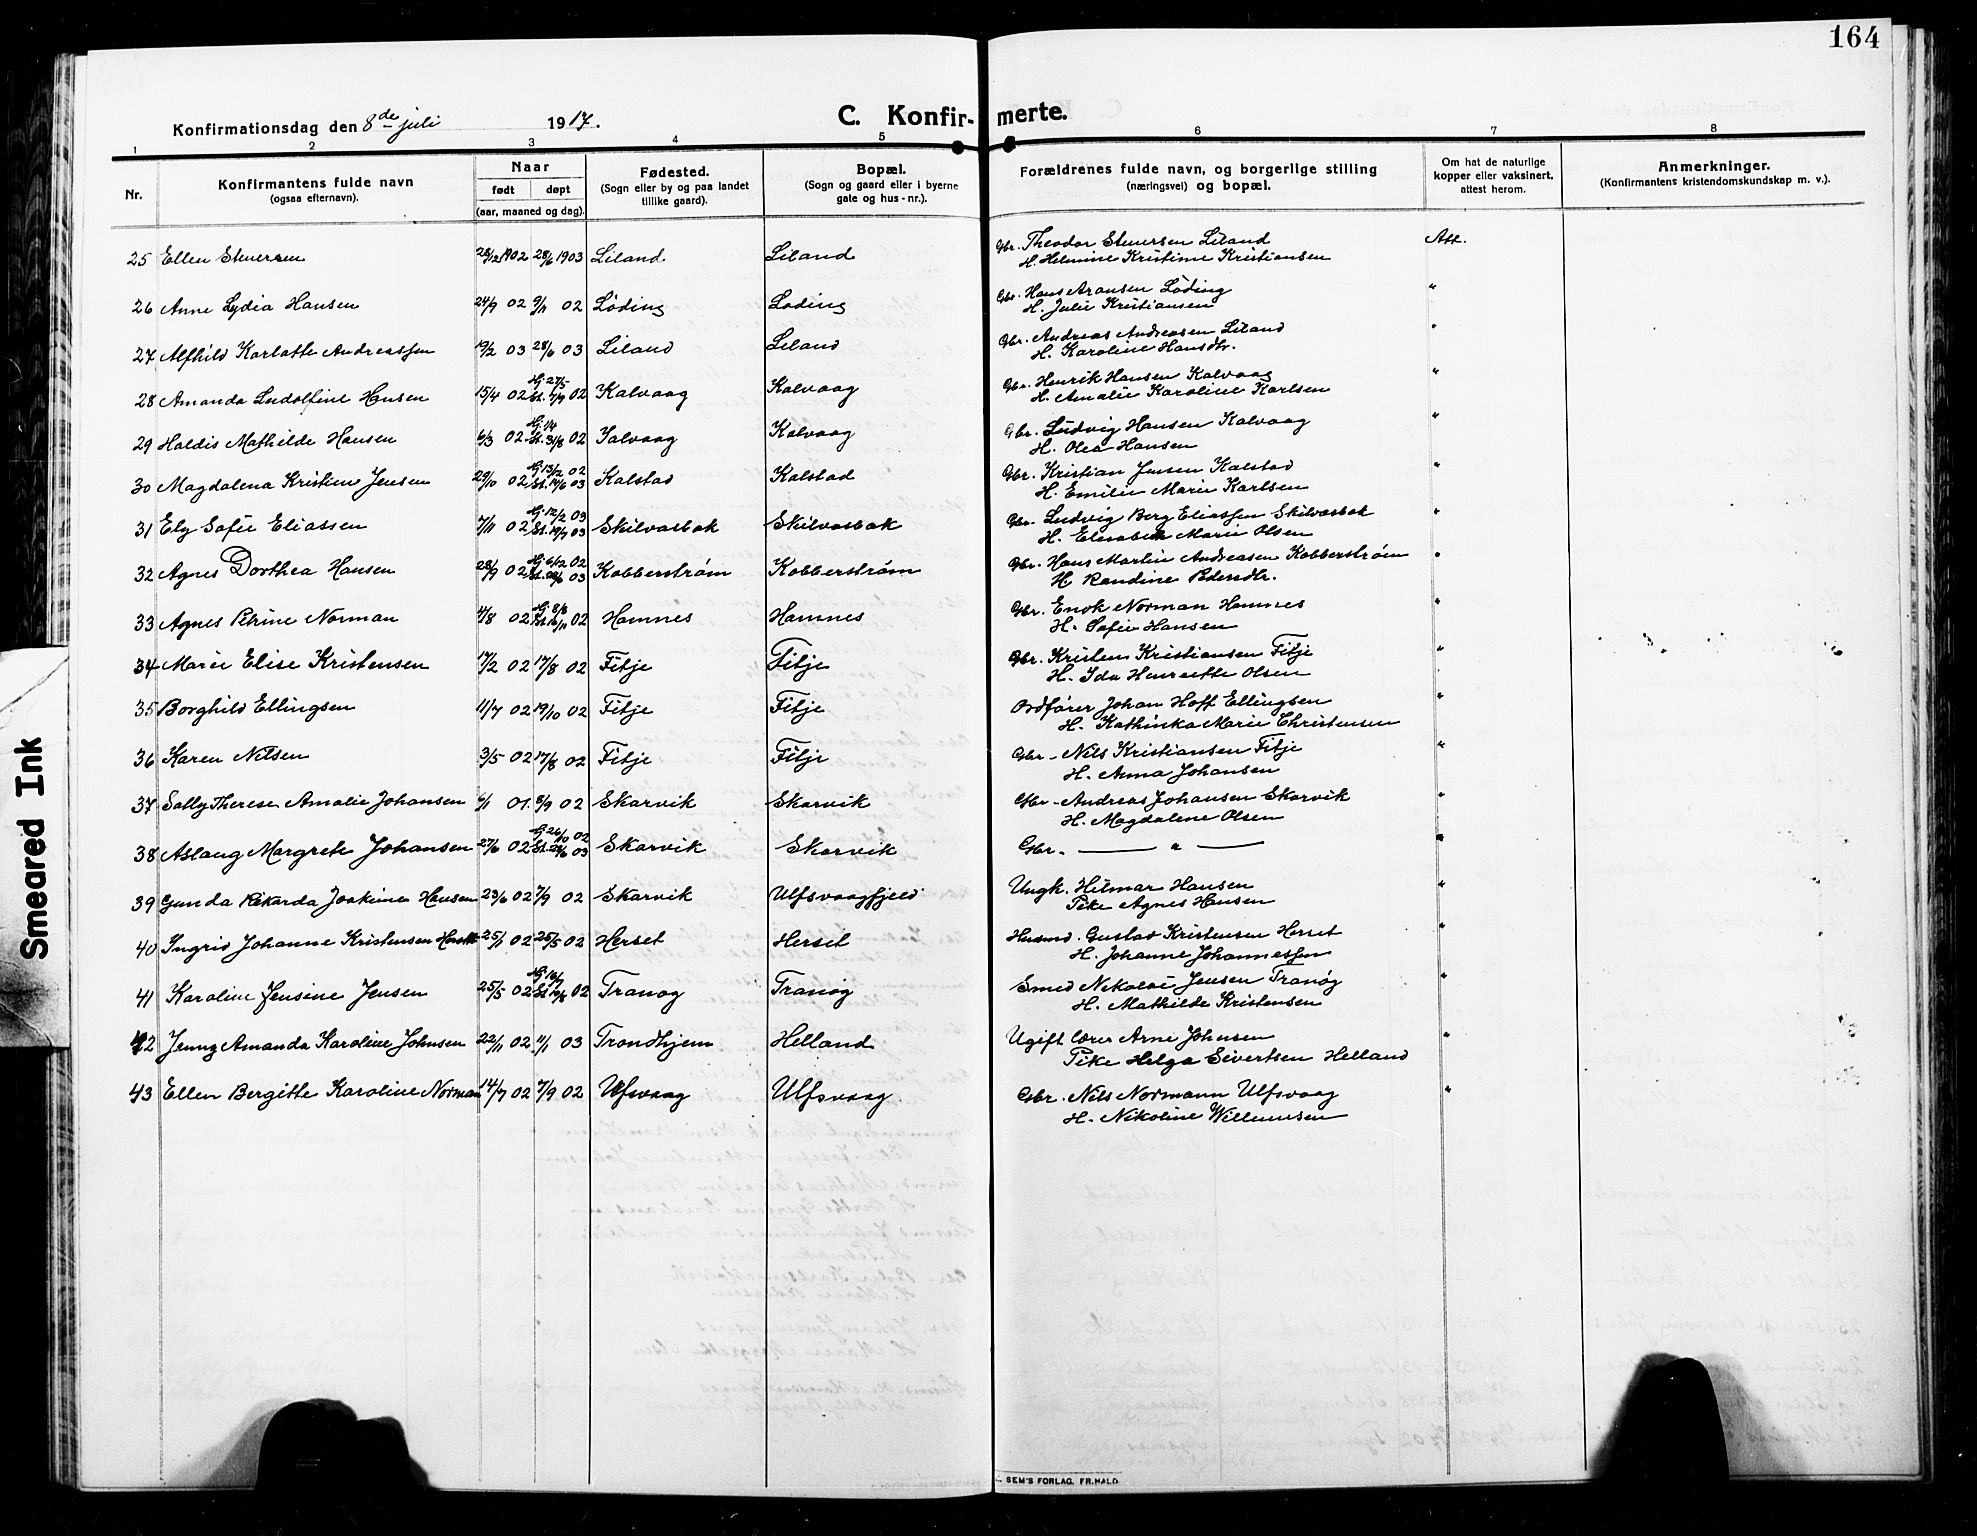 164
Konfirmationsdag den 8de juli 1917.
C. Konfirmerte.
1 2 3 4 5 6 7 8
Nr.
Konfirmantens fulde navn
(ogsaa efternavn).
Naar
født døpt
(aar, maaned og dag).
Fødested.
(Sogn eller by og paa landet
tillike gaard).
Bopæl.
(Sogn og gaard eller i byerne
gate og hus-nr.).
Forældrenes fulde navn, og borgerlige stilling
(næringsvei) og bopæl.
Om hat de naturlige
kopper eller vaksinert,
attest herom.
Anmerkninger.
(Konfirmantens kristendomskundskap m. v.).
25 Ellen Stenersen 28/12 1902 28/6 1903 Liland Liland Gbr. Theodor Stenersen Liland Att.
H. Helmine Kristine Kristiansen
26 Anne Lydia Hansen 24/9 02 9/11 02 Løding Løding Gbr. Hans Aronsen Løding "
H. Julie Kristiansen
27 Alfhild Karlotte Andreassen 19/2 03 28/6 03 Liland Liland Gbr. Andreas Andreasen Liland "
H. Karoline Hansdtr.
28 Amanda Ludolfine Hansen 15/4 02 Hj. 27/5 St. 7/9 02 Kalvaag Kalvaag Gbr. Henrik Hansen Kalvaag "
H. Amalie Karoline Karlsen
29 Haldis Mathilde Hansen 6/3 02 Hj. 1/4 St. 31/8 02 Kalvaag Kalvaag Gbr. Ludvig Hansen Kalvaag "
H. Olea Hansen
30 Magdalena Kristine Jensen 29/10 02 Hj. 13/12 02 St. 14/6 03 Kalstad Kalstad Gbr. Kristian Jensen Kalstad "
H. Emilie Marie Karlsen
31 Ely Sofie Eliassen 7/11 02 Hj. 12/2 03 St. 19/7 03 Skilvasbak Skilvasbak Gbr. Ludvig Berg Eliassen Skilvasbak "
H. Elisabet Marie Olsen
32 Agnes Dorthea Hansen 28/9 02 Hj. 6/12 02 St. 28/6 03 Kobberstrøm Kobberstrøm Gbr. Hans Martin Andreasen Kobberstrøm "
H. Randine Pedersdtr.
33 Agnes Petrine Norman 4/8 02 Hj. 8/8 St. 16/11 02 Hamnes Hamnes Gbr. Enok Norman Hamnes "
H. Sofie Hansen
34 Marie Elise Kristensen 17/2 02 17/8 02 Fitje Fitje Gbr. Kristen Kristiansen Fitje "
H. Ida Henriette Olsen
35 Borghild Ellingsen 11/7 02 19/10 02 Fitje Fitje Ordfører Johan Hoff Ellingsen "
H. Kathinka Marie Christensen
36 Karen Nilsen 3/5 02 17/8 02 Fitje Fitje Gbr - Nils Kristiansen Fitje "
H. Anna Johansen
37 Solly Therese Amalie Johansen 01. 02 Skarvik Skarvik Gbr - Andreas Johansen Skarvik "
H. Magdalene Olsen
38 Aslaug Margrete Johansen 27/6 02 Hj. 26/10 02 St. 28/6 03 Skarvik Skarvik Gbr. — " — "
39 Gunda Rikarda Joakima Hansen 23/6 02 7/9 02 Skarvik Ulfsvaagfjeld Ungk. Hilmar Hansen "
Pike Agnes Hansen
40 Ingrid Johanne Kristensen 25/1 02 25/5 02 Herset Herset Husmd. Gustav Kristensen Herset "
H. Johanne Johannessen
41 Karoline Jensine Jensen 25/5 02 Tranøy Tranøy Smed Nikolai Jensen Tranøy "
H. Mathilde Kristensen
42 Jenny Amanda Karoline Johnsen 22/11 02 1/1 03 Trondhjem Helland Ugift lærer Arne Johnsen "
Pike Helga Sivertsen Helland
43 Ellen Bergitte Karoline Norman 14/7 02 7/9 02 Ulfsvaag Ulfsvaag Gbr. Nils Normann Ulfsvaag "
H. Nikoline Willumsen
SEM'S FORLAG, FR.HALD.
Smeared Ink